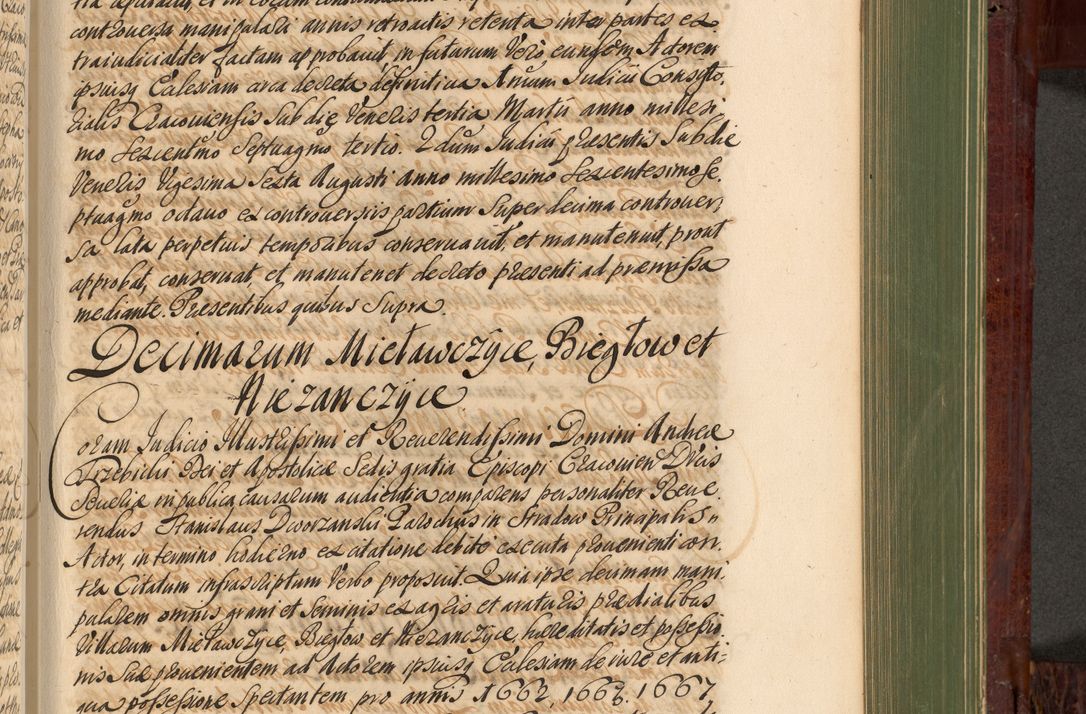 controversa manipulari annis retroactis retenta inter partes ex
traiudicialiter factam approbavit, in futurum vero eundem Actorem
ipsiusq Ecclesiam circa decreta definitiva Annum Iudicii Consysto,
rialis Cracoviensis sub die Veneris tertia Martii anno millesi
mo sexcentmo septuagmo tertio. 2dum Iudicii presentis sub die
Veneris Vigesima Sexta Augusti anno millesimo sexcentesimo se,
ptuagmo octavo ex controversiis partium super decima controver,
sa lata perpetuis temporibus conservavit, et manutenuit, prout
approbat, conservat, et manutenet decreto presenti ad præmissa
mediante. Presentibus quibus supra.
Decimarum Mieławczÿce, Biegłow et
Niezanczÿce
Coram Iudicio Illustrissimi et Reverendissimi Domini Andreæ
Trzebicki Dei et Apostolicæ Sedis gratia Episcopi Cracovien Ducis
Severiæ in publica causarum audientia comparens personaliter Reve,
rendus Stanislaus Dworzanski Parochus in Stradow Principalis
Actor, in termino hodierno ex citatione debite executa provenienti con,
tra Citatum infrascriptum Verbo proposuit. Quia ipse decimam mani,
pularem omnis grani et seminis ex agris et araturis prædialibus
Villarum Mieławczÿce, Biegłow et Niezanczÿce, hæreditatis et possessio,
nis suæ provenientem ad Actorem ipsiusq Ecclesiam de iure et anti,
qua possessione spectantem pro annis 1662, 1663. 1667,